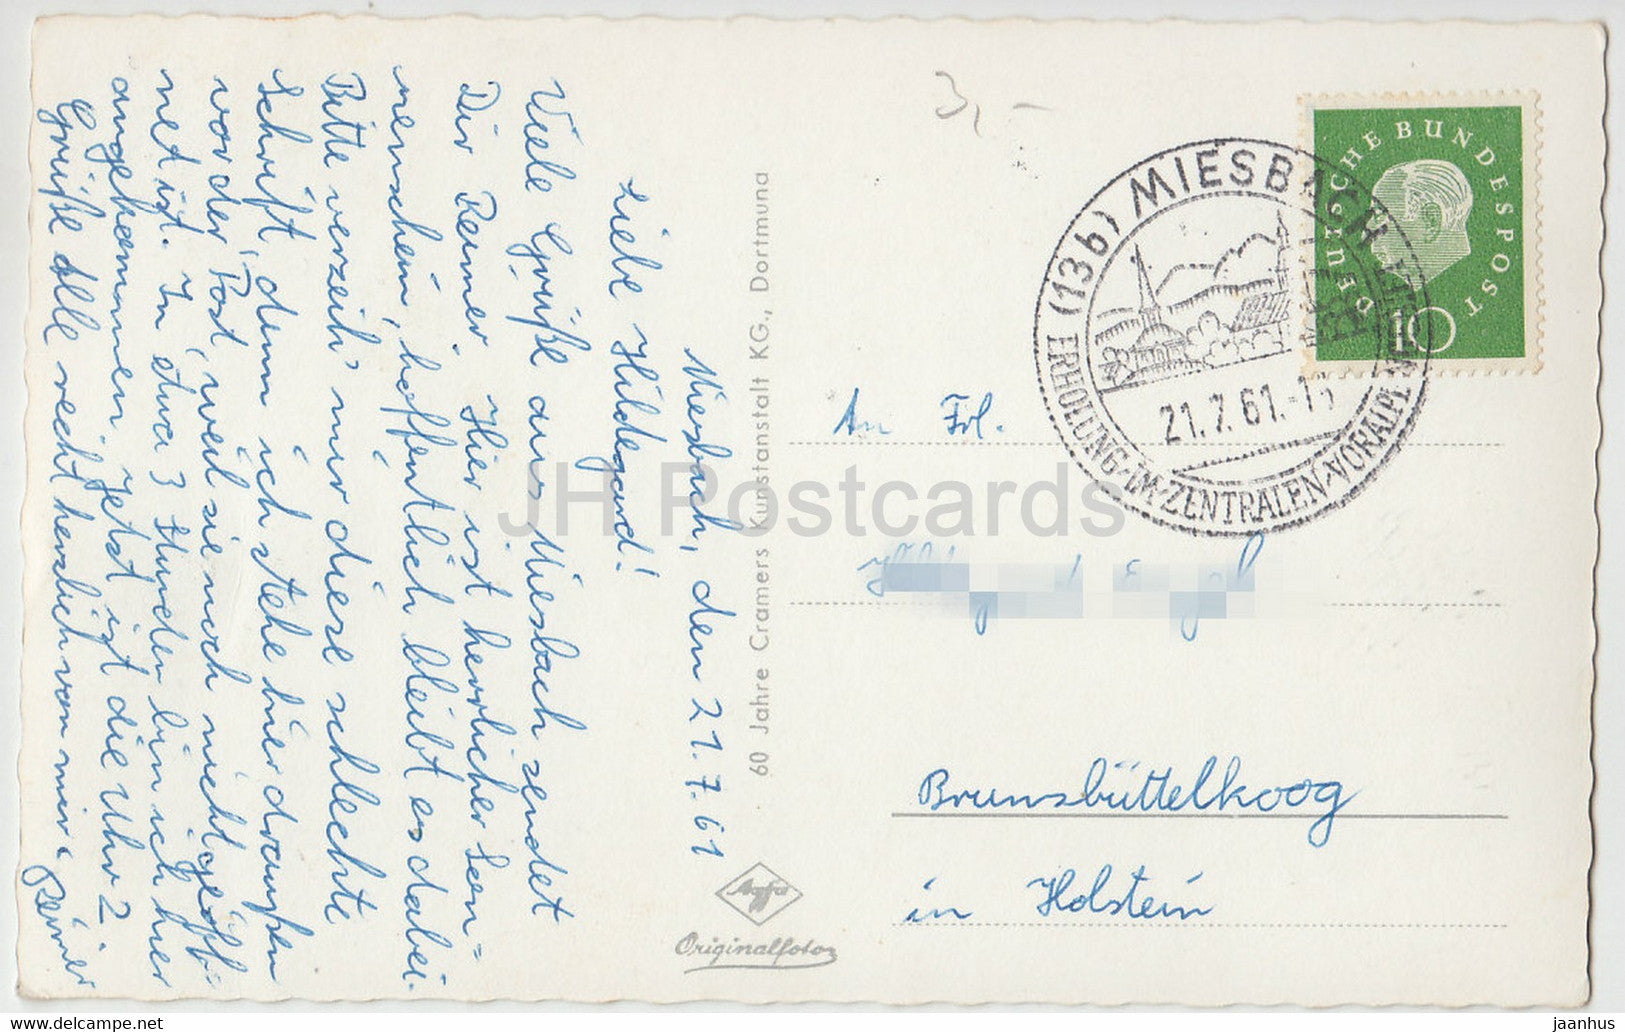 Miesbach, den 21.7.61
Liebe Hildegard!
Viele Grüße aus Miesbach sendet
Dir Reimer. Hier ist herrlicher Son=
nenschein, hoffentlich bleibt es dabei.
Bitte verzeih' mir diese schlechte
Schrift, denn ich stehe hier draußen
vor der Post, weil sie noch nicht geöff-
net ist. In etwa 3 Stunden bin ich hier
angekommen. Jetzt ist die Uhr 2
Grüße alle recht herzlich von mir. Reimer
60 Jahre Cramers Kunstanstalt KG., Dortmund
Agfa
Originalfoto
3,-
DEUTSCHE BUNDESPOST
10
(13b) MIESBACH
21.7.61.-1
ERHOLUNG·IM·ZENTRALEN·VORALPEN
An Frl.
Brunsbüttelkoog
in Holstein
JH Postcards
www.delcampe.net
jaanhus